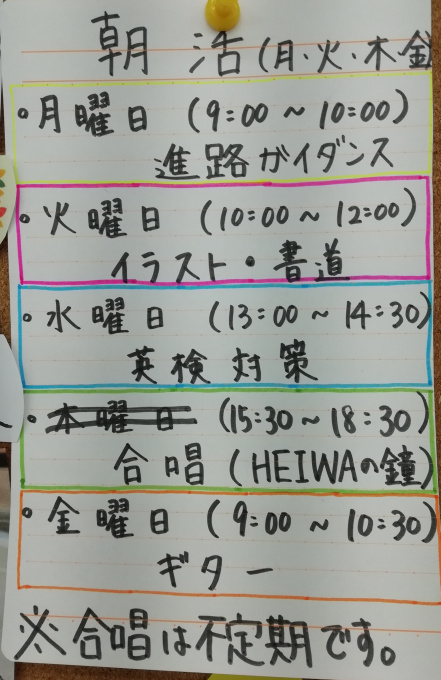 朝活(月・火・木・金
・月曜日 (9:00~10:00)
進路ガイダンス
・火曜日 (10:00~12:00)
イラスト・書道
・水曜日 (13:00~14:30)
英検対策
・木曜日 (15:30~18:30)
合唱(HEIWAの鐘)
・金曜日 (9:00~10:30)
ギター
※合唱は不定期です。